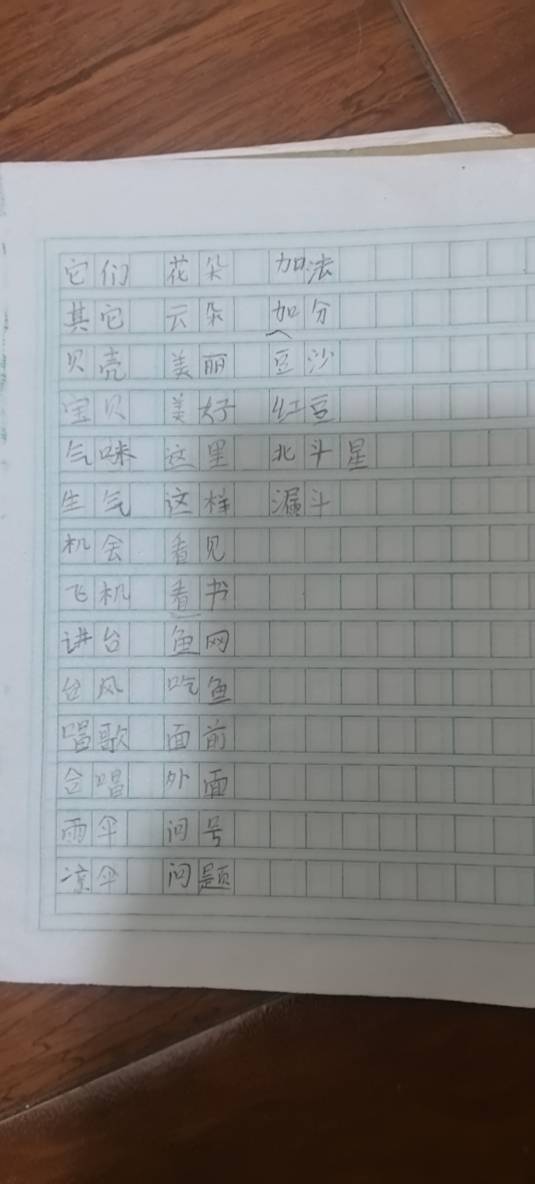 它们 花朵 加法
其它 云朵 加分
贝壳 美丽 豆沙
宝贝 美好 红豆
气味 这里 北斗星
生气 这样 漏斗
机会 看见
飞机 看书
讲台 鱼网
台风 吃鱼
唱歌 面前
合唱 外面
雨伞 问号
凉伞 问题